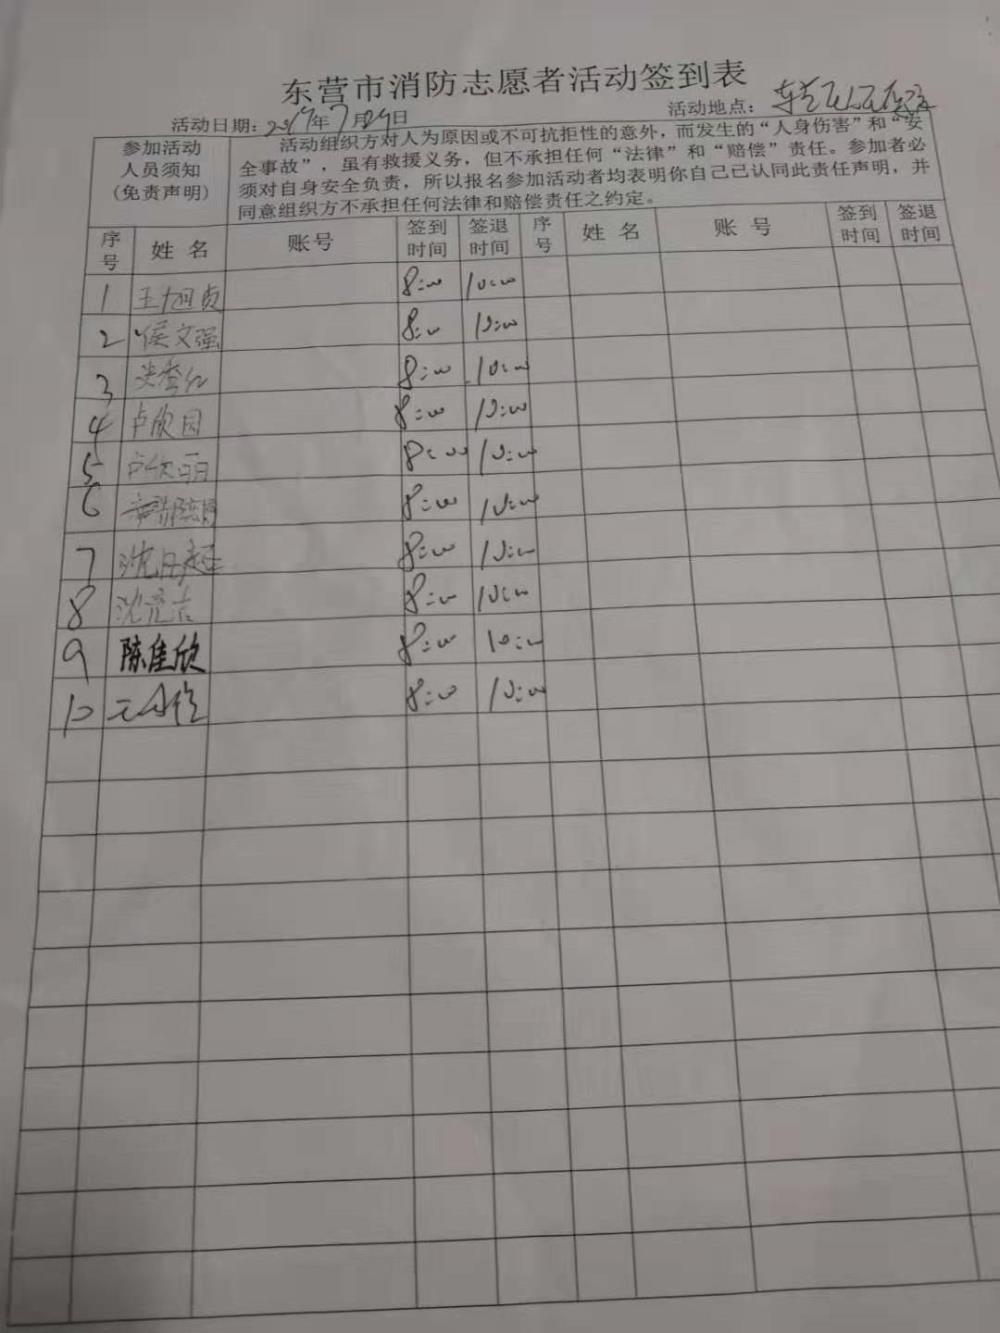 东营市消防志愿者活动签到表
活动日期：2019年7月29日 活动地点：
参加活动人员须知(免责声明)
活动组织方对人为原因或不可抗拒性的意外，而发生的“人身伤害”和“安
全事故”，虽有救援义务，但不承担任何“法律”和“赔偿”责任。参加者必
须对自身安全负责，所以报名参加活动者均表明你自己已认同此责任声明，并
同意组织方不承担任何法律和赔偿责任之约定。
序号 姓名 账号 签到时间 签退时间 序号 姓名 账号 签到时间 签退时间
1 8:00 10:00
2 侯文强 8:00 10:00
3 8:00 10:00
4 卢欣园 8:00 10:00
5 卢欣丽 8:00 10:00
6 8:00 10:00
7 8:00 10:00
8 8:00 10:00
9 陈佳欣 8:00 10:00
10 8:00 10:00